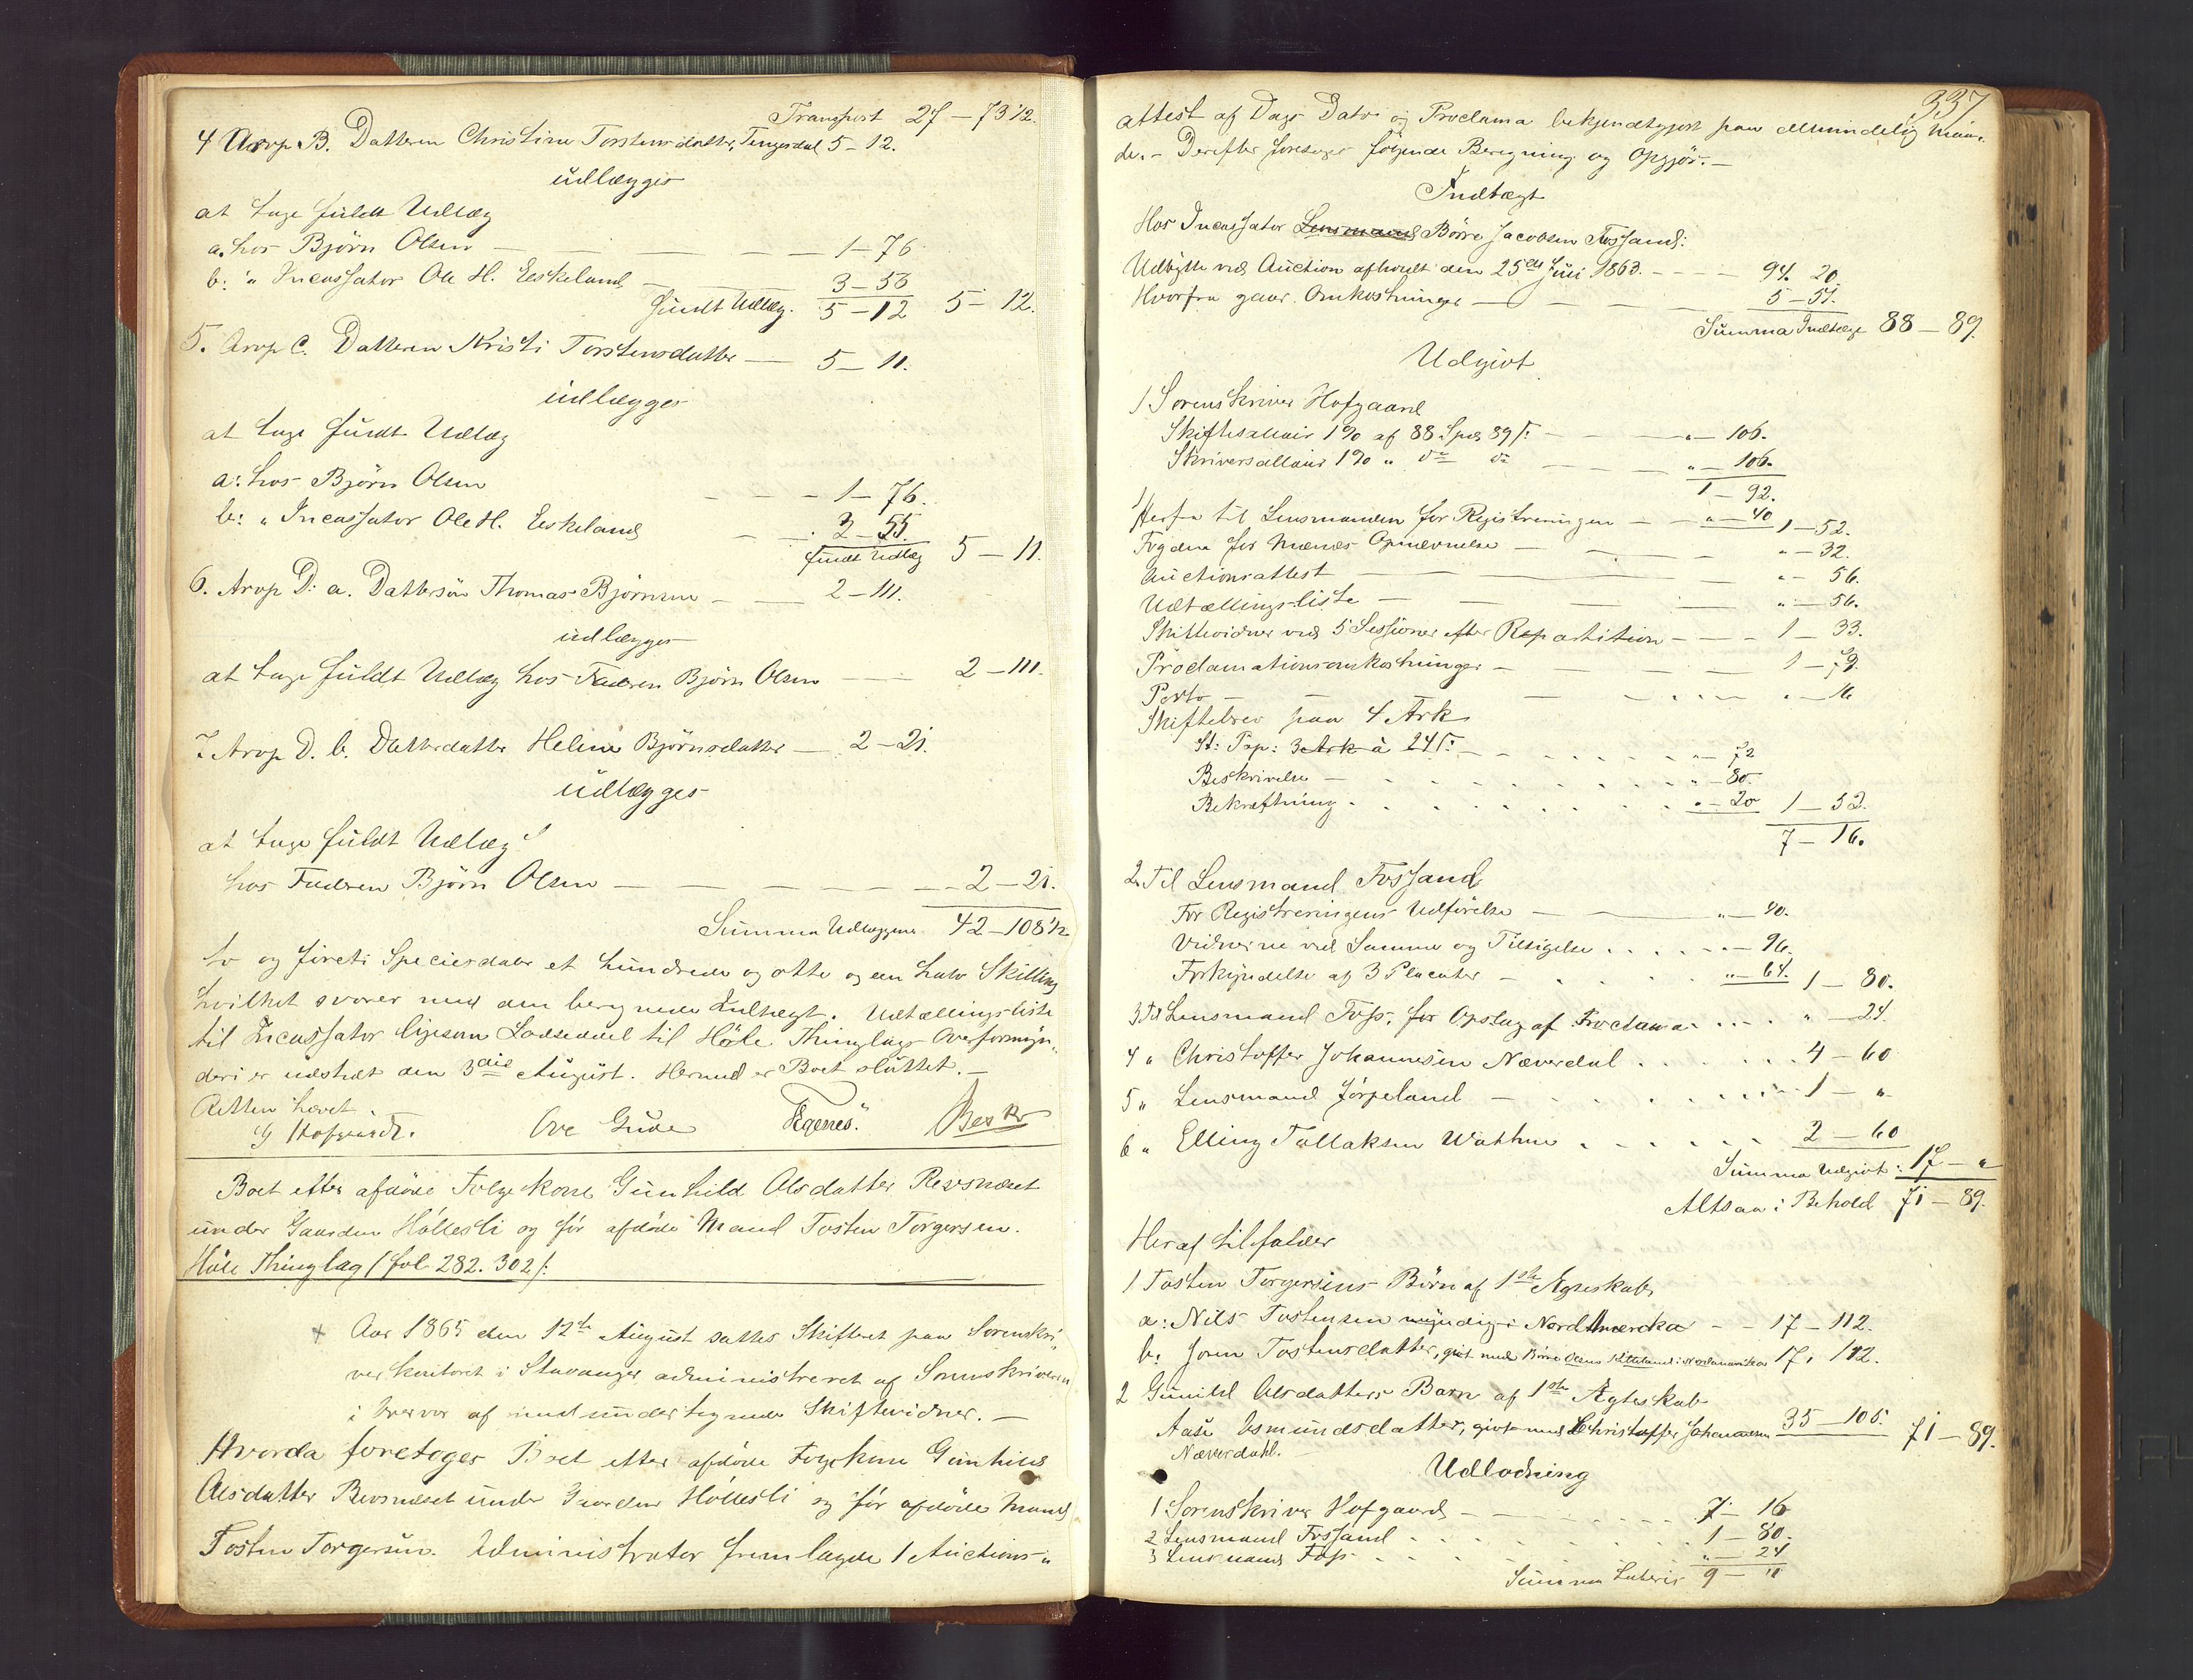 Transport 27 – 73 1/2.
4 Arv B. Datteren Christine Torstensdatter, Tengesdal 5 – 12.
udlægges
at tage fuldt Udlæg
a. hos Bjørn Olsen — 1 – 76
b: " Incassator Ole H. Eskeland — 3 – 56
fuldt Udlæg. 5 – 12 5 – 12.
5. Arv C. Datteren Kristi Torstensdatter — 5 – 11.
udlægges
at tage fuldt Udlæg
a: hos Bjørn Olsen – – – 1 – 76.
b: " Incassator Ole H. Eskeland – – 3 – 55.
fuldt Udlæg 5 – 11.
6. Arv D: a. Dattersøn Thomas Bjørnsen – — 2 – 111.
udlægges
at tage fuldt Udlæg hos Faderen Bjørn Olsen — 2 – 111.
7. Arv D. b. Datterdatter Heline Bjørnsdatter — 2 – 21.
udlægges
at tage fuldt Udlæg
hos Faderen Bjørn Olsen — 2 – 21.
Summa Udlæggene 42 – 108 1/2
to og førti Speciesdaler et hundrede og otte og en halv Skilling
hvilket svarer med den beregnede Indtægt. Udtællingsliste
til Incassator ligesom Lodseddel til Høle Thinglags Overformyn„
deri er udstedt den 3die August. Hermed er Boet sluttet. –
Retten hævet.
G Hofgaard. Ove Gude Egenes. Beskr
Boet efter afdøde Folgekone Gunhild Olsdatter Revsnæset
under Gaarden Höllesli og før afdøde Mand Tosten Torgersen.
Høle Thinglag (fol 282. 302).
+ Aar 1865 den 12te August sattes Skifteret paa Sorenskri„
verkontoret i Stavanger administreret af Sorenskriveren
i Overvær af medundertegnede Skiftevidner. –
Hvorda foretoges Boet efter afdøde Folgekone Gunhild
Olsdatter Revsnæset under Gaarden Höllesli og før afdøde Mand
Tosten Torgersen. Administrator fremlagde 1 Auctions„
337
attest af Dags Dato og Proclama bekjendtgjort paa almindelig Maa„
de. – Derefter foretoges følgende Beregning og Opgjör. –
Indtægt
Hos Incassator Lensmand Börre Jacobsen Fossand:
Udbytte ved Auction afholdt den 25de Juli 1863. – – – 94. 20
Hvorfra gaar Omkostninger — 5 – 51.
Summa Indtægt 88 – 89.
Udgivt
1 Sorenskriver Hofgaard
Skiftesallair 1% af 88 Spd 89 ſ: — " – 106.
Skriversallair 1% " do do — " – 106.
1 – 92.
Herfra til Lensmanden for Registreringen — " – 40 1 – 52.
Fogden for Mænds Opnævnelse — " – 32.
Auctionsattest — " – 56.
Udtællingsliste — " – 56.
Skiftevidner ved 5 Sessioner efter Repartition – – – 1 – 33.
Proclamationsomkostninger – — 1 – 79.
Porto — " – 16
Skiftebrev paa 4 Ark
St: Pap: 3 Ark à 24 ſ: " – 72
Beskrivelse – " – 80.
Bekræftning . " – 20 1 – 52.
7 – 16.
2. Til Lensmand Fossand
For Registreringens Udförelse — " – 40.
Vidnerne ved Samme og Tilsigelse . . . . " – 96.
Forkyndelse af 3 Placater – " – 64. 1 – 80.
3 Til Lensmand Foss, for Opslag af Proclama . . . " – 24.
4 " Christoffer Johannesen Næverdal . . . . 4 – 60
5 " Lensmand Jörpeland – . . . . 1 – "
6 " Elling Tollaksen Wathne . . . . 2 – 60
Summa Udgivt. 17 – "
Altsaa i Behold 71 – 89.
Heraf tilfalder
1 Tosten Torgersens Börn af 1ste Ægteskab
a: Nils Tostensen myndig i Nordamerika – – 17 – 112.
b. Joren Tostensdatter, givt med Börre Olsens i Nordamerika 17. 112.
2 Gunild Olsdatters Barn af 1ste Ægteskab
Aase Osmundsdatter, givt med Christoffer Johannesen 35 – 105. 71 – 89.
Næverdahl. –
Udlodning
1 Sorenskriver Hofgaard – . . . . 7 – 16
2 Lensmand Fossand . . . . 1 – 80.
3 Lensmand Foss . . . . " – 24
Summa Lateris 9 – "